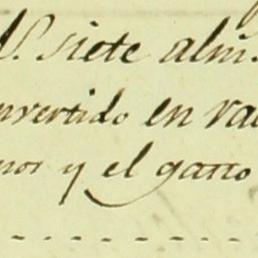 siete alm.
nvertido en va
nor y el gasto